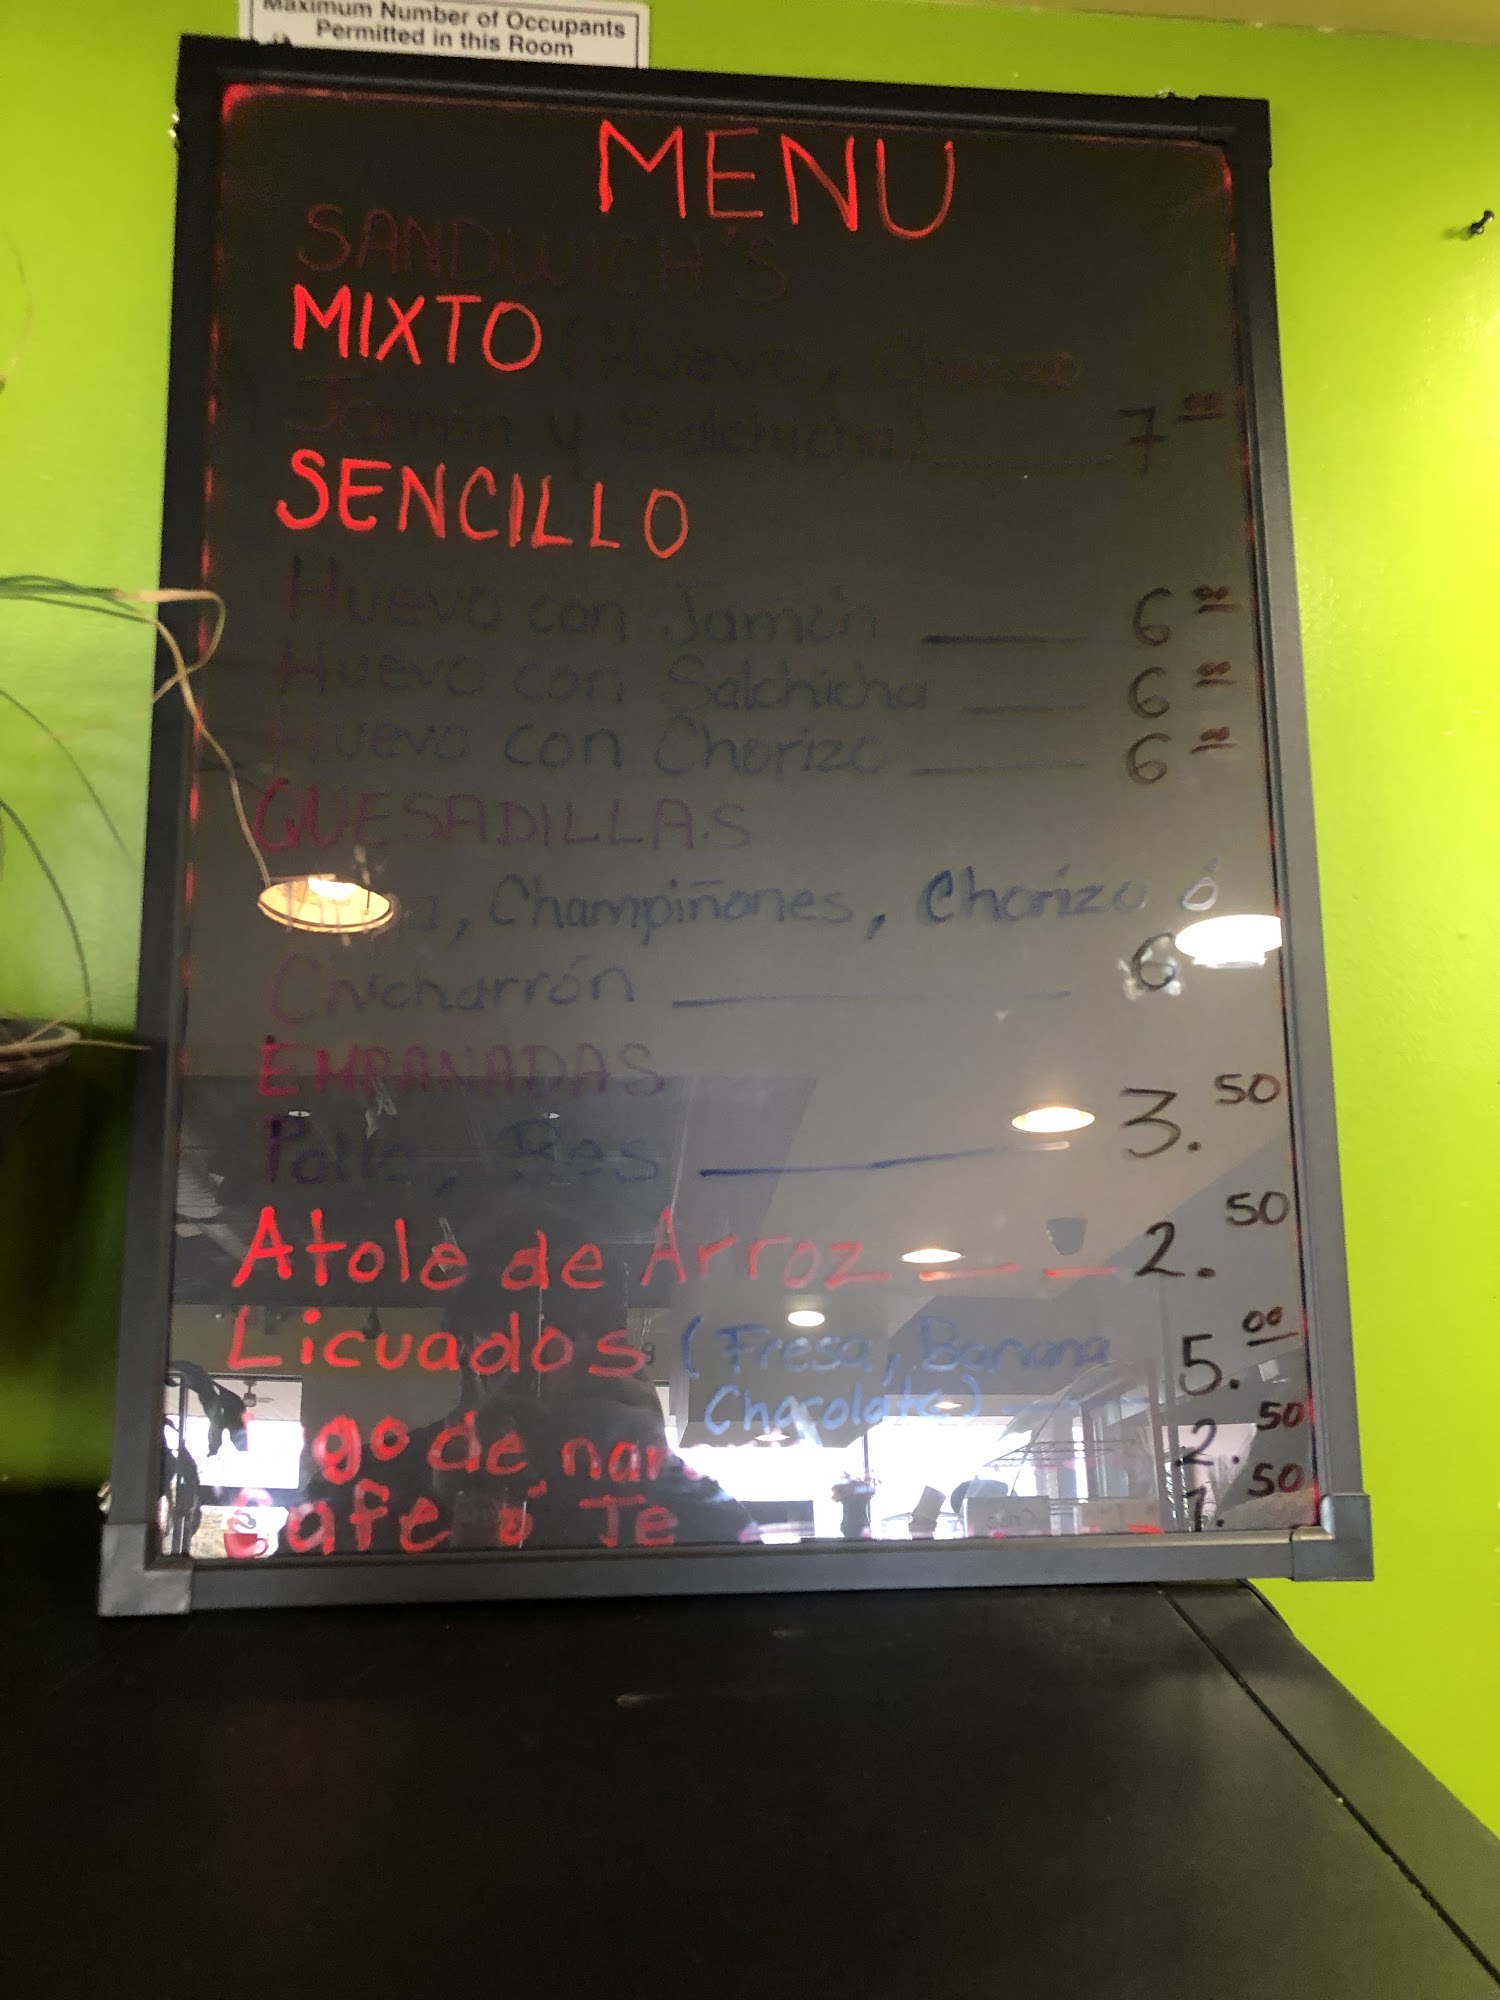 Maximum Number of Occupants
Permitted in this Room
MENU
SANDWICH'S
MIXTO (Huevo, Chorizo
Jamón y Salchicha) 7 00
SENCILLO
Huevo con Jamón 6 00
Huevo con Salchicha 6 00
Huevo con Chorizo 6 00
QUESADILLAS
Champiñones, Chorizo ó
Chicharrón 6
EMPANADAS
Pollo, Res 3.50
Atole de Arroz 2.50
Licuados (Fresa, Banana 5.00
Chocolate)
de 2.50
Cafe ó Te 1.50